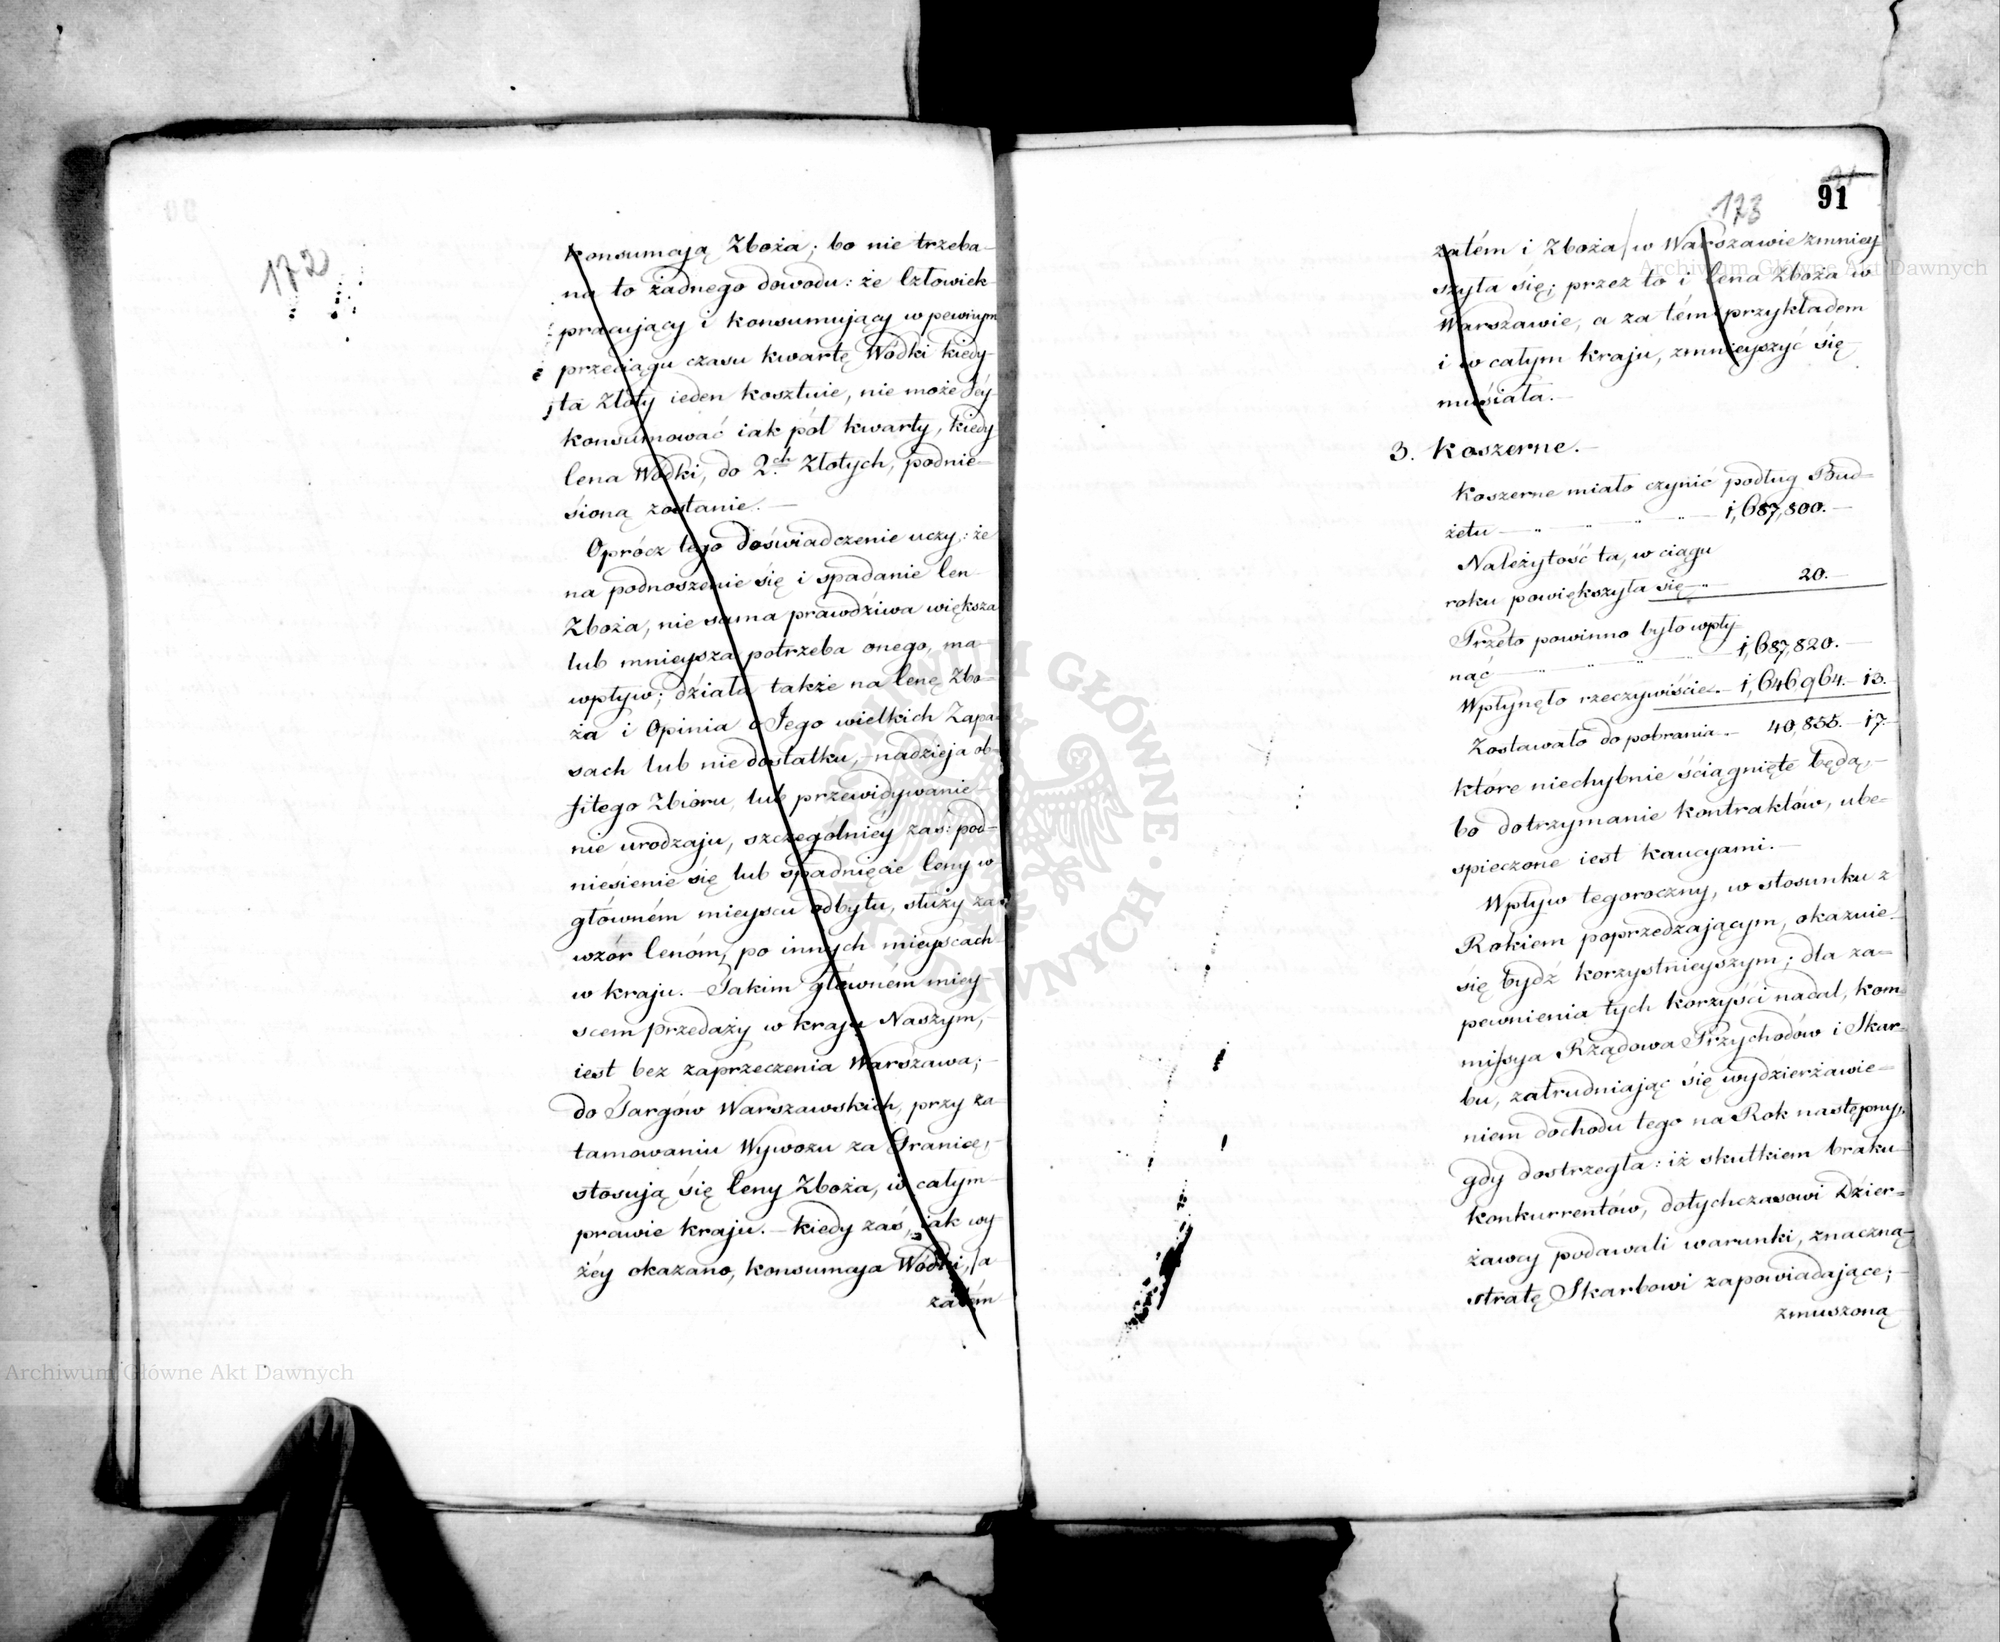 172
konsumają Zboża; bo nie trzeba
na to żadnego dowodu: że Człowiek
pracujący i konsumujący w pewnym
przeciągu czasu kwartę Wódki kiedy
ta Złoty ieden kosztuie, nie może Jéy
konsumować iak pół kwarty, kiedy
Cena Wódki, do 2.ch Złotych, podnie=
sioną zostanie.—
Oprócz tego doświadczenie uczy: że
na podnoszenie się i spadanie Cen
Zboża, nie sama prawdziwa większa
lub mnieysza potrzeba onego, ma
wpływ; działa także na Cenę Zbo=
ża i Opinia o Jego wielkich Zapa=
sach lub niedostatku, nadzieja ob=
fitego Zbioru, lub przewidywanie
nieurodzaju, szczególniey zaś: pod=
niesienie się lub spadnięcie Ceny w
główném mieyscu odbytu, służy za
wzór Cenóm, po innych mieyscach
w kraju.— Takim główném miey=
scem przedaży w kraju Naszym,
iest bez zaprzeczenia Warszawa;
do Targów Warszawskich, przy za
tamowaniu Wywozu za Granicę,
stosują się Ceny Zboża, w całym
prawie kraju.— Kiedy zaś, jak wy
żéy okazano, konsumaja Wódki, a
zatém
91
173
zatém i Zboża w Warszawie zmniey
szyła się; przez to i Cena Zboża w
Warszawie, a za tém przykładem
i w całym kraju, zmnieyszyć się
musiała.—
3. Koszerne.—
Koszerne miało czynić podług Bud=
żetu — „ — „ — „ — 1,687,800.—
Należytość ta, w ciągu
roku powiększyła się — „ — 20.—
Przeto powinno było wpły
nąć — „ — „ — „ — 1,687,820.—
Wpłynęło rzeczywiście.— 1,646,964.— 13.
Zostawało do pobrania.— 40,855.— 17.
które niechybnie ściągnięte będą,
bo dotrzymanie kontraktów, ube=
spieczone iest kaucyami.—
Wpływ tegoroczny, w stosunku z
Rokiem poprzedzającym, okazuie
się bydź korzystnieyszym; dla za=
pewnienia tych korzyści nadal, kom=
missya Rządowa Przychodów i Skar=
bu, zatrudniając się wydzierżawie=
niem dochodu tego na Rok następny,
gdy dostrzegła: iż skutkiem braku
konkurrentów, dotychczasowi Dzier=
żawcy podawali warunki, znaczną
stratę Skarbowi zapowiadające;
zmuszoną
Archiwum Główne Akt Dawnych
Archiwum Główne Akt Dawnych
ARCHIWUM GŁÓWNE AKT DAWNYCH